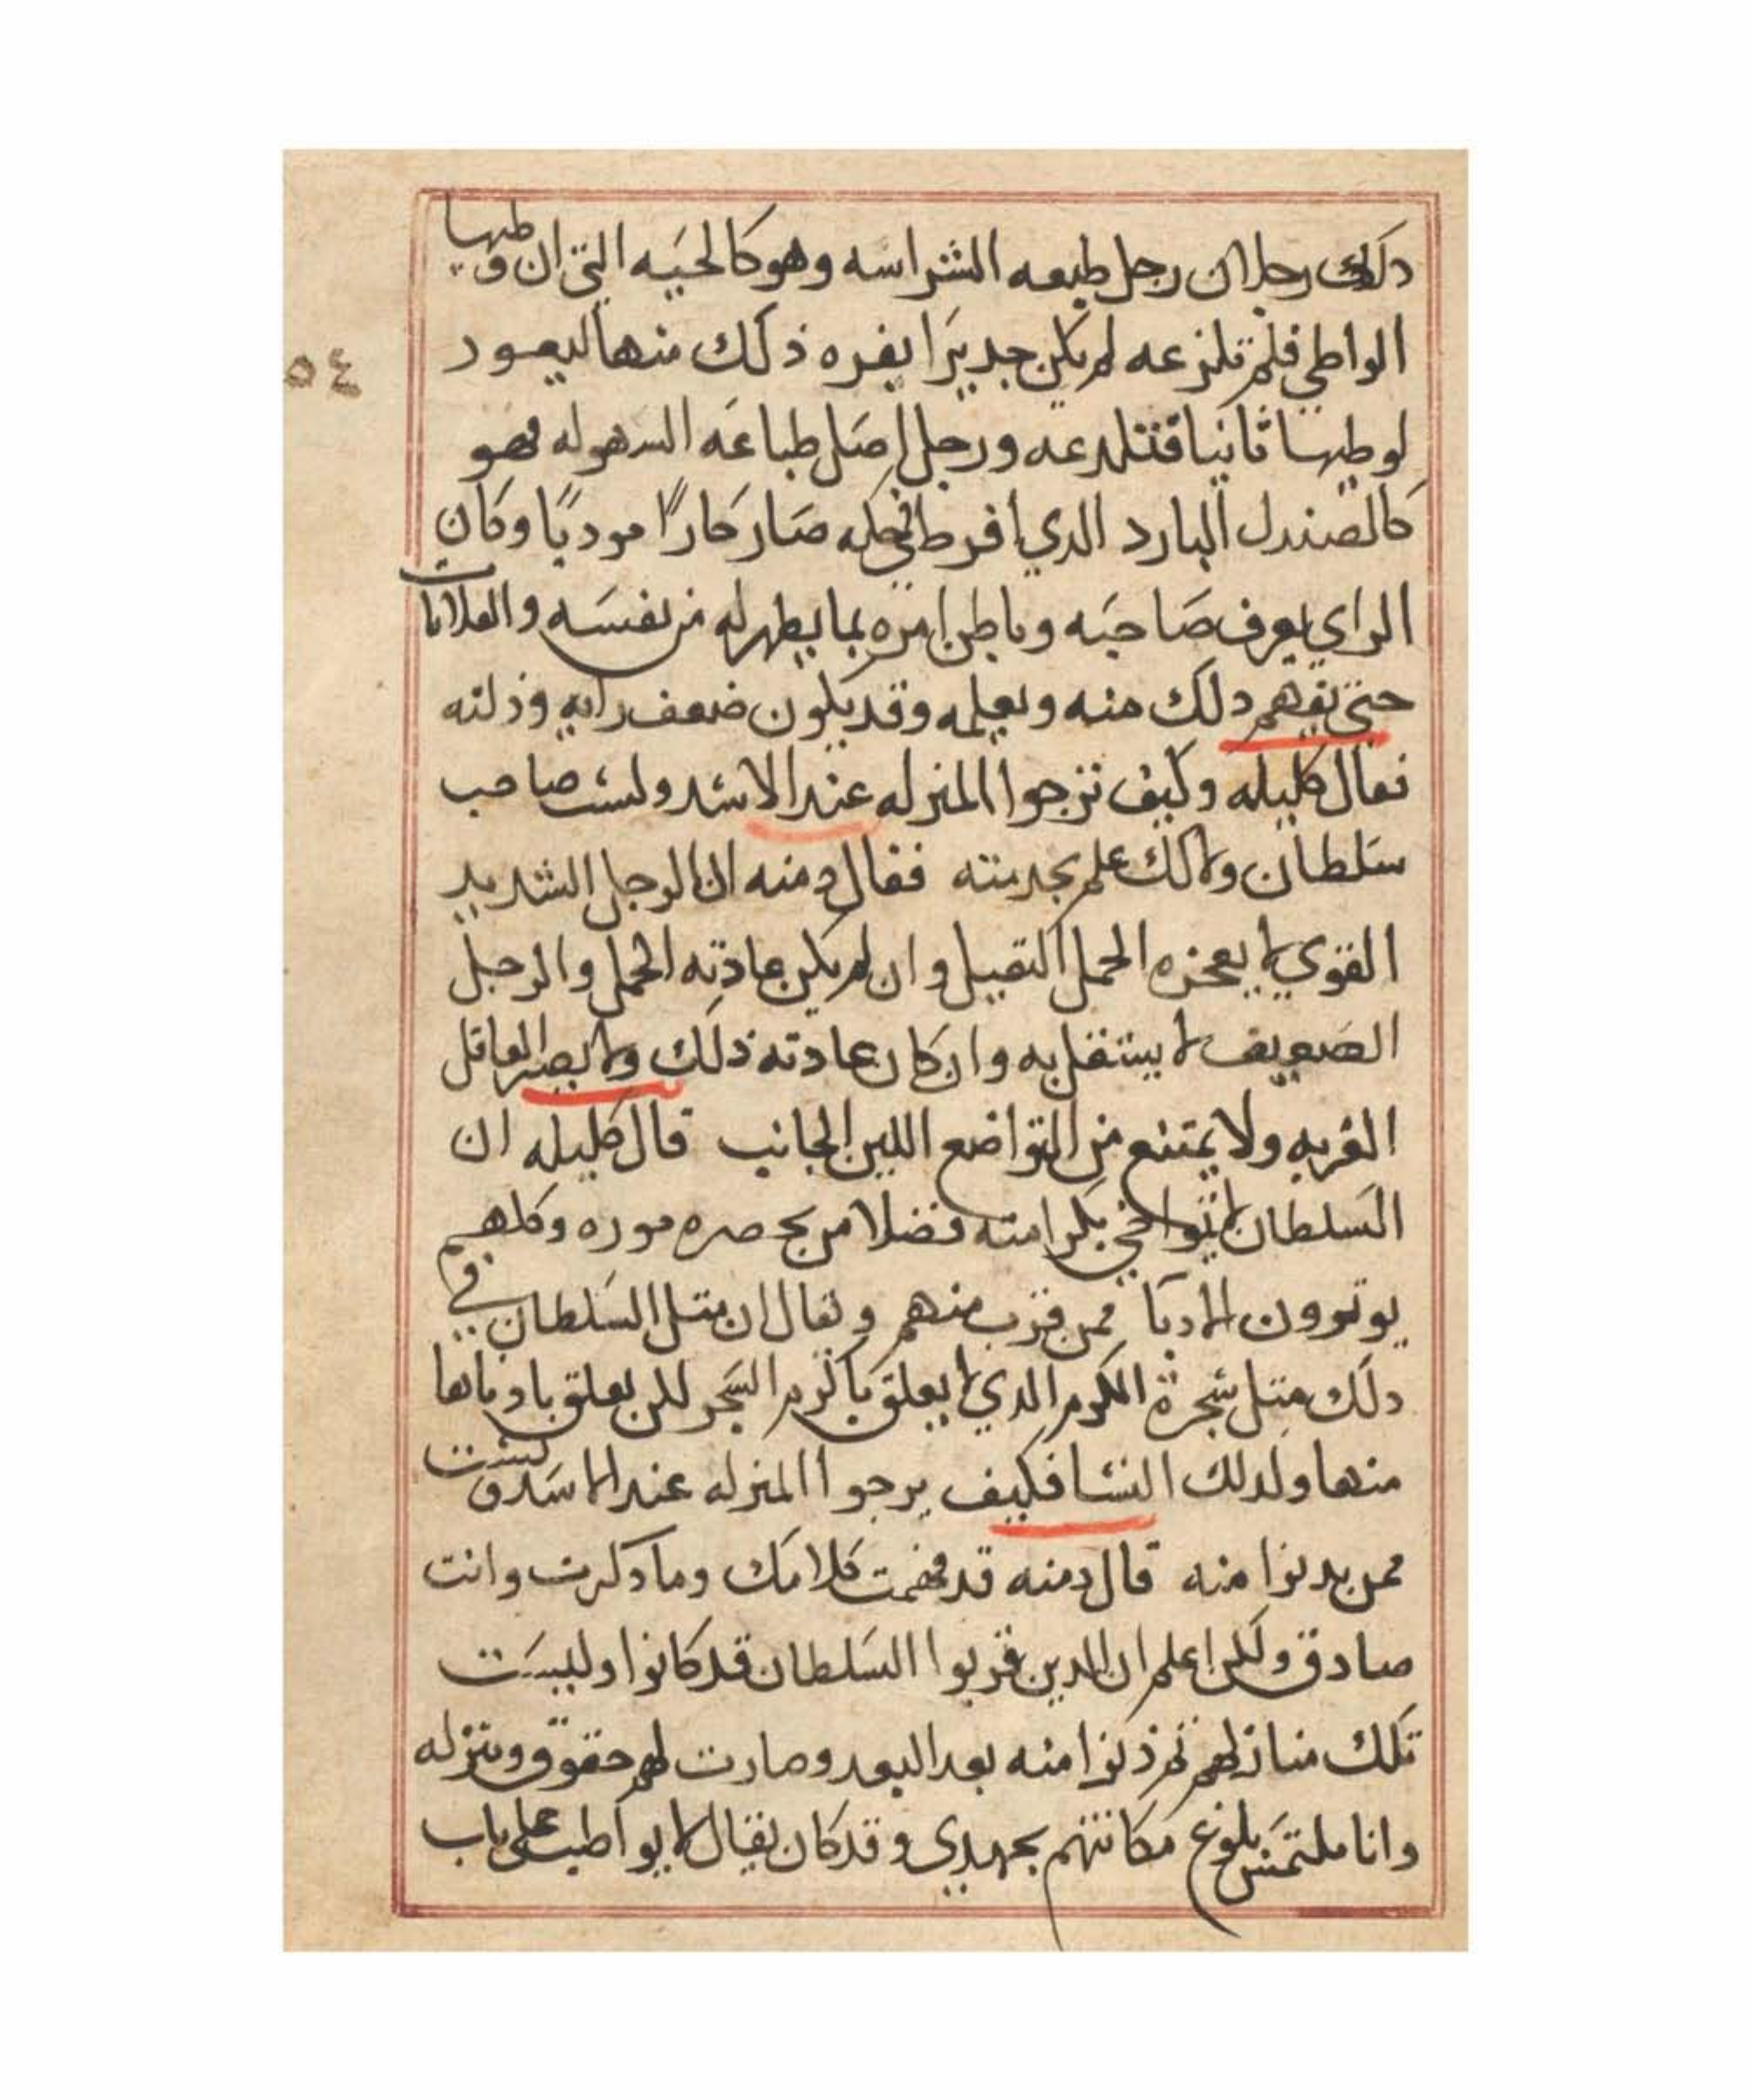 دلك رجلان رجل طبعه الشراسه وهو كالحيه التي ان وطيها
الواطي فلم تلزعه لم يكن جديرا يغره ذلك منها ليعود
لوطيها ثانيا فتتلدعه ورجل اصل طباعه السهوله فهو
كالصندل البارد الدي افرط في حكه صار حارا موديا وكان
الراي يعرف صاحبه وباطن امره بما يظهر له من نفسه والعلامات
حتي يفهم دلك منه ويعلمه وقد يكون ضعف رايه وزلته
فقال كليله وكيف ترجوا المنزله عند الاسد ولست صاحب
سلطان ولا لك علم بخدمته فقال دمنه ان الرجل الشديد
القوي لا يعجزه الحمل التقيل وان لم يكن عادته الحمل والرجل
الضعيف لا يستقل به وان كان عادته ذلك ولا يضر العاقل
الغربه ولا يمتنع من التواضع اللين الجانب قال كليله ان
السلطان لا يتواخي بكرامته فضلا من بحصره موره وكلهم
يوتوون الادبا ممن قرب منهم ويقال ان متل السلطان في
دلك متل شجرة الكرم الدي لا يعلق باكرم السجر لكن يعلق بادناها
منها ولدلك النسا فكيف يرجوا المنزله عند الاسد ولست
ممن يدنوا منه قال دمنه قد فهمت كلامك وما دكرت وانت
صادق ولكن اعلم ان الدين قربوا السلطان قد كانوا وليست
تلك منازلهم ثم دنوا منه بعد البعد وصارت لهم حقوق ومنزله
وانا ملتمس بلوغ مكانتهم بجهدي وقد كان يقال لا يواطب علي باب
٥٤